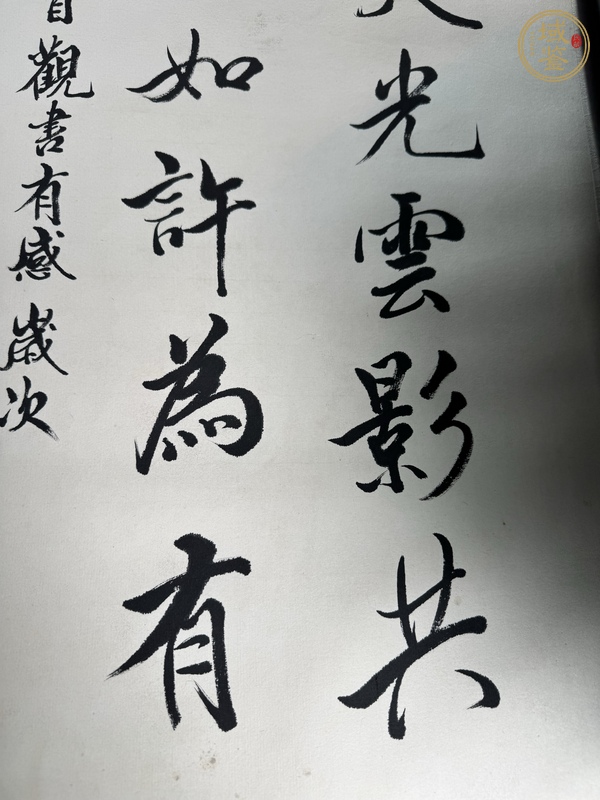 光雲影共
如許為有
觀書有感 歲次